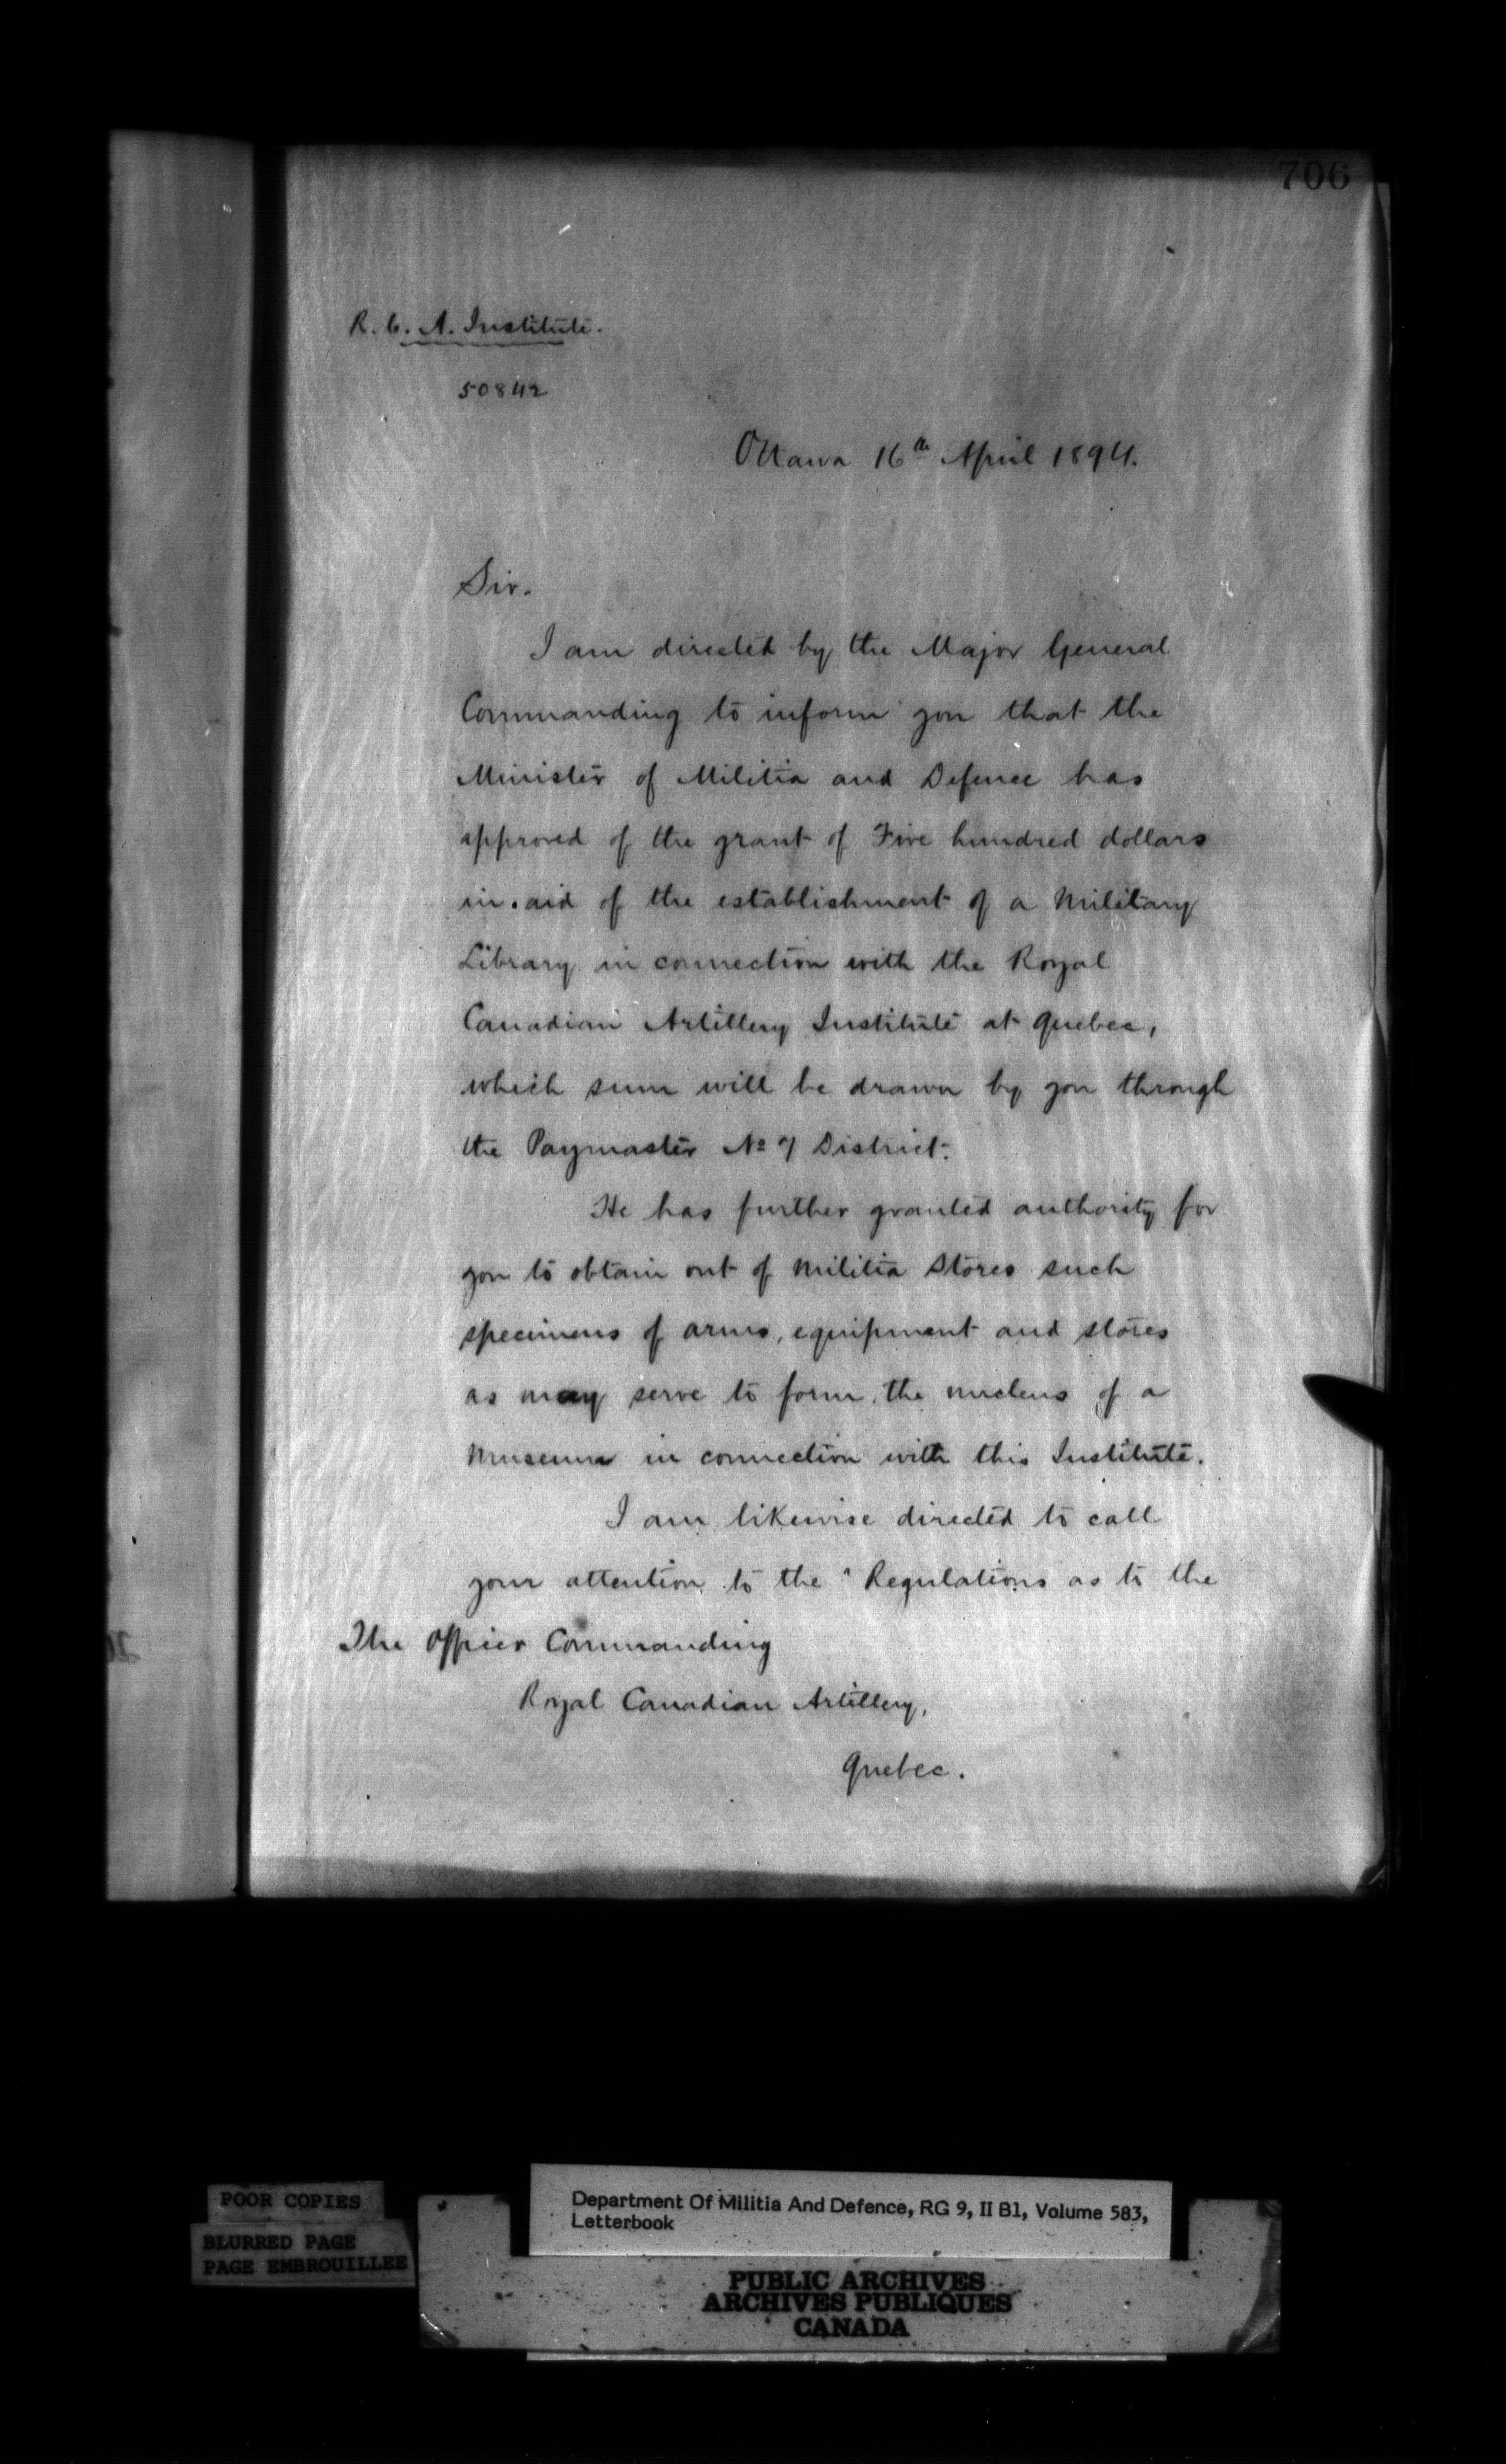 706
R. C. A. Institute.
50842
Ottawa 16th April 1894.
Sir.
I am directed by the Major General
Commanding to inform you that the
Minister of Militia and Defence has
approved of the grant of Five hundred dollars
in aid of the establishment of a Military
Library in connection with the Royal
Canadian Artillery Institute at Quebec,
which sum will be drawn by you through
the Paymaster No 7 District.
He has further granted authority for
you to obtain out of Militia Stores such
specimens of arms, equipment and stores
as may serve to form the nucleus of a
Museum in connection with this Institute.
I am likewise directed to call
your attention to the "Regulations as to the
The Officer Commanding
Royal Canadian Artillery,
Quebec.
POOR COPIES
BLURRED PAGE
PAGE EMBROUILLEE
Department Of Militia And Defence, RG 9, II B1, Volume 583,
Letterbook
PUBLIC ARCHIVES
ARCHIVES PUBLIQUES
CANADA